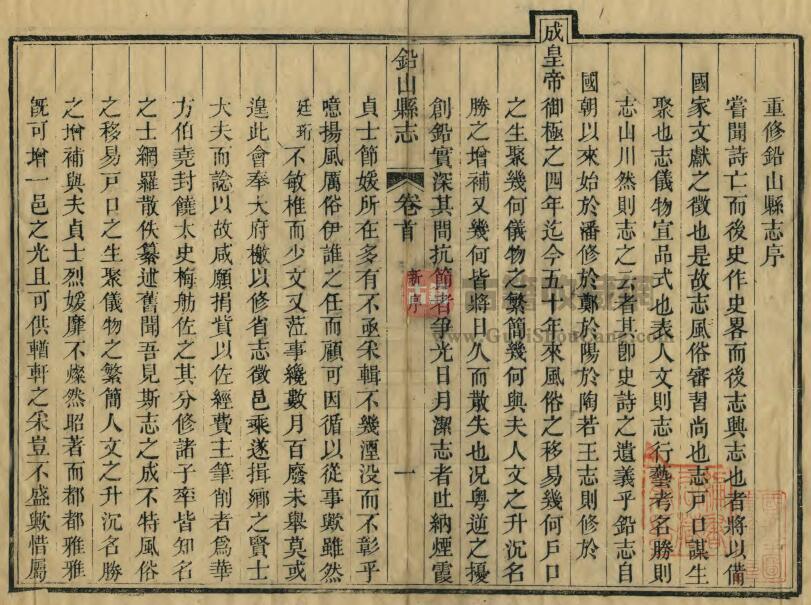 重修鉛山縣志序
嘗聞詩亡而後史作史畧而後志興志也者將以備
國家文獻之徵也是故志風俗審習尚也志戸口謀生
聚也志儀物宣品式也表人文則志行藝考名勝則
志山川然則志之云者其卽史詩之遺義乎鉛志自
國朝以來始於潘修於鄭於陽於陶若王志則修於
成皇帝御極之四年迄今五十年來風俗之移易幾何戸口
之生聚幾何儀物之繁簡幾何與夫人文之升沉名
勝之增補又幾何皆將日久而散失也况粵逆之擾
創鉛實深其間抗節者爭光日月潔志者吐納煙霞
鉛山縣志
卷首
新序
一
貞士節媛所在多有不亟采輯不幾湮没而不彰乎
噫揚風厲俗伊誰之任而顧可因循以從事歟雖然
廷珩不敏椎而少文又涖事纔數月百廢未舉莫或
遑此會奉大府檄以修省志徵邑乘遂揖鄉之賢士
大夫而諗以故咸願捐貲以佐經費主筆削者爲華
方伯堯封饒太史梅舫佐之其分修諸子率皆知名
之士網羅散佚纂述舊聞吾見斯志之成不特風俗
之移易戸口之生聚儀物之繁簡人文之升沉名勝
之增補與夫貞士烈媛靡不燦然昭著而都都雅雅
旣可增一邑之光且可供輶軒之采豈不盛歟惜屬
古籍收藏網
www.GuJiShouCang.com